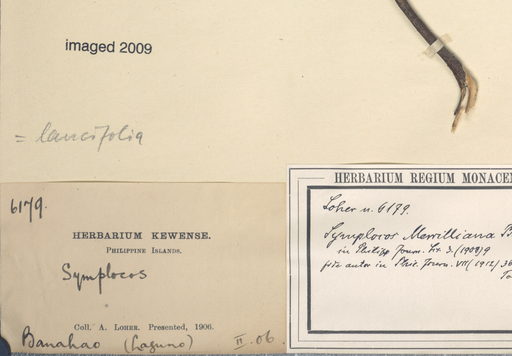 imaged 2009
= lancifolia
6179.
HERBARIUM KEWENSE.
PHILIPPINE ISLANDS.
Symplocos
Coll. A. LOHER. Presented, 1906.
Banahao (Laguno) II. 06.
HERBARIUM REGIUM MONACEN
Loher n. 6179.
Symplocos Merrilliana B
in Philipp. Journ. Sc. 3. (1908) 9
fide autor in Phil. Journ. VII (1912) 36